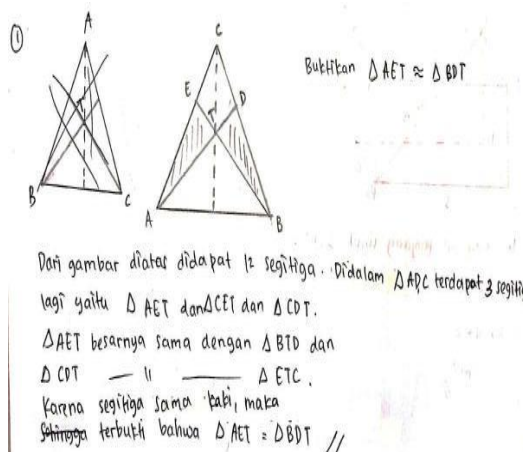 ①
A
B
C
C
E
D
T
A
B
Buktikan Δ AET ≈ Δ BDT
Dari gambar diatas didapat 12 segitiga. Didalam Δ ADC terdapat 3 segitig
lagi yaitu Δ AET dan Δ CET dan Δ CDT.
Δ AET besarnya sama dengan Δ BTD dan
Δ CDT — 11 — Δ ETC.
Karena segitiga sama kaki, maka
Sehingga terbukti bahwa Δ AET = Δ BDT //